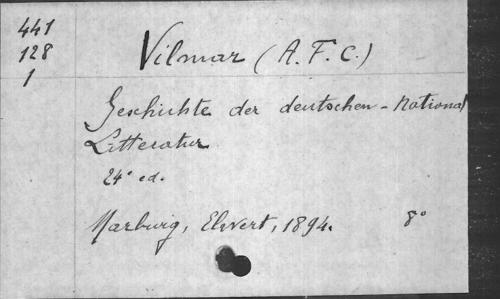 441
128
1
Vilmar (A. F. C.)
Geschichte der deutschen - National
Litteratur
24e ed.
Marburg, Elwert, 1894.
8°